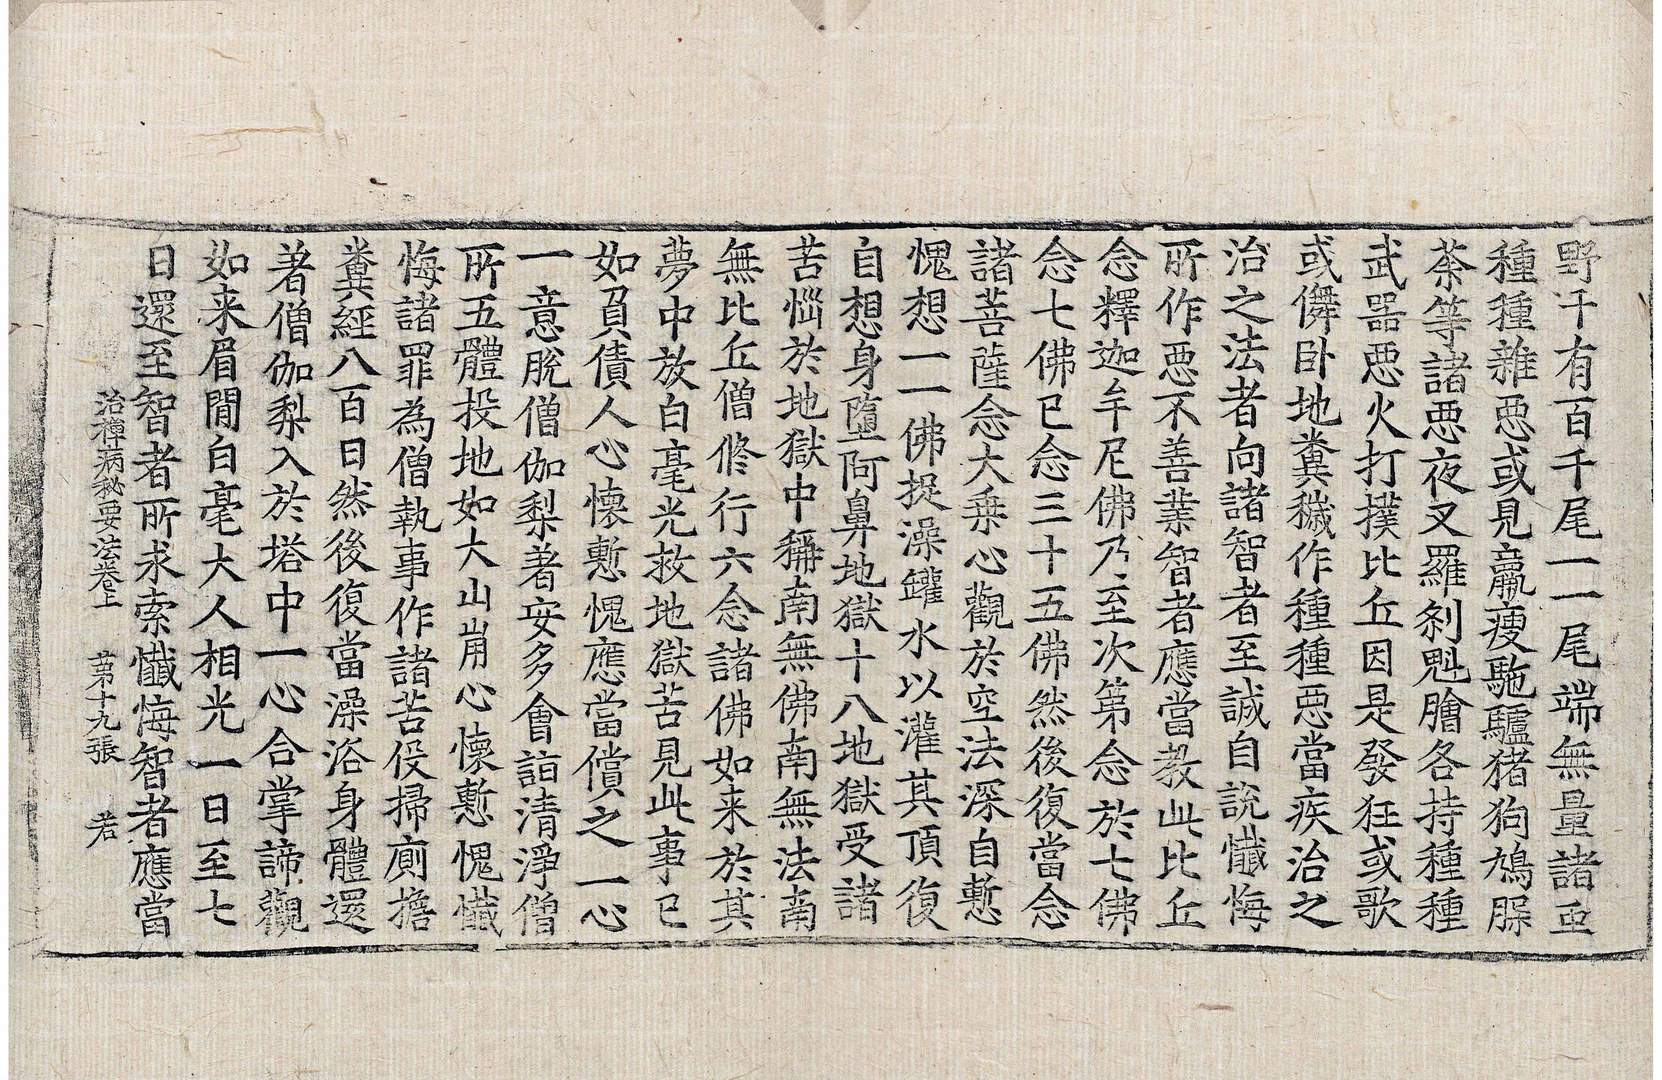 野干有百千尾一一尾端無量諸䖝
種種雜惡或見羸瘦駞驢猪狗鳩
荼等諸惡夜叉羅剎魁膾各持種種
武器惡火打撲比丘因是發狂或歌
或儛卧地糞穢作種種惡當疾治之
治之法者向諸智者至誠自說懺悔
所作惡不善業智者應當教此比丘
念釋迦牟尼佛乃至次第念於七佛
念七佛已念三十五佛然後復當念
諸菩薩念大乘心觀於空法深自慙
愧想一一佛捉澡罐水以灌其頂復
自想身墮阿鼻地獄十八地獄受諸
苦惱於地獄中稱南無佛南無法南
無比丘僧修行六念諸佛如来於其
夢中放白毫光救地獄苦見此事已
如負債人心懷慙愧應當償之一心
一意脫僧伽梨著安多會詣清淨僧
所五體投地如大山崩心懷慙愧懺
悔諸罪為僧執事作諸苦役掃廁擔
糞經八百日然後復當澡浴身體還
著僧伽梨入於塔中一心合掌諦觀
如来眉間白毫大人相光一日至七
日還至智者所求索懺悔智者應當
治禪病秘要法卷上 第十九張 若